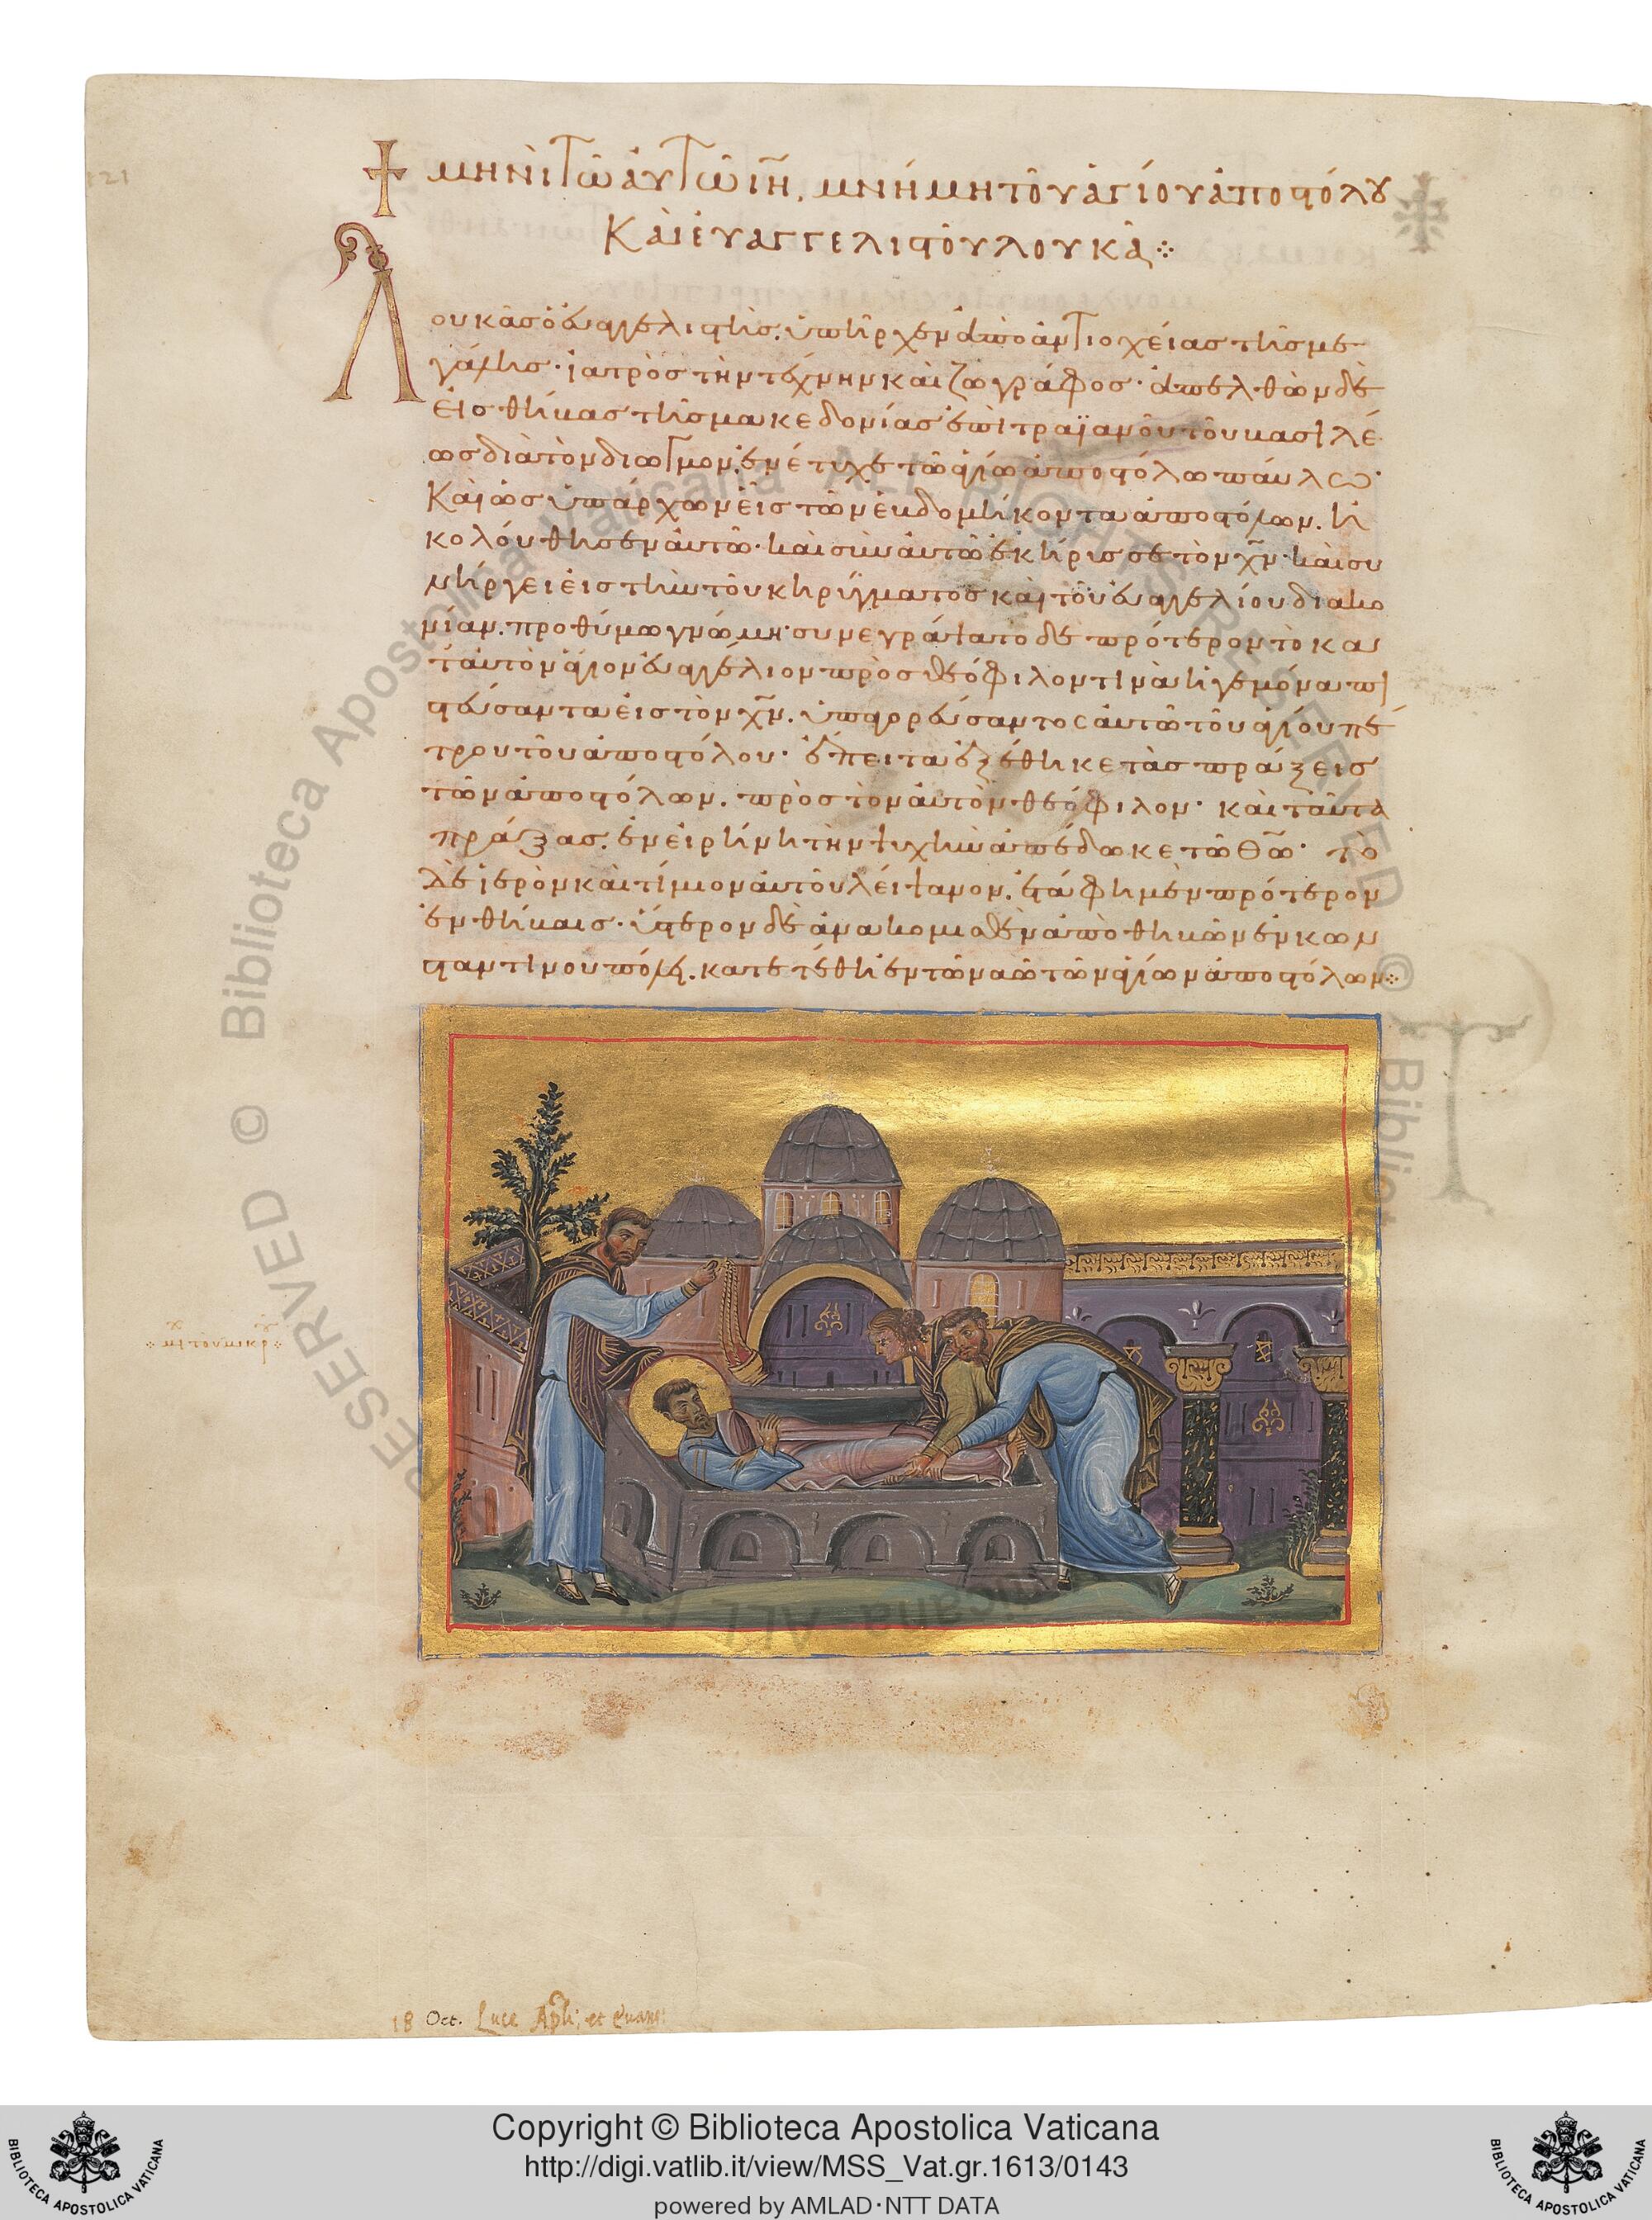 121
μηνὶ τῶ αὐτῶ ιη̄. μνήμη τοῦ ἁγίου ἀποστόλου
Καὶ εὐαγγελιστοῦ λουκᾶ
Λουκᾶς ὁ εὐαγγελιστὴς. ὑπῆρχεν ἀπὸ ἀντιοχείας τῆς με
γάλης· ἰατρὸς τὴν τέχνην καὶ ζωγράφος· ἀπελθὼν δὲ
εἰς θήβας τῆς μακεδονίας ἐπὶ τραϊανοῦ τοῦ βασιλέ
ως διὰ τὸν διωγμον. ἐνέτυχε τῶ ἁγίω ἀποστόλω παύλω·
Καὶ ὡς ὑπάρχων εἷς τῶν ἑβδομήκοντα ἀποστόλων. ἠ
κολούθησεν αὐτῶ· καὶ σὺν αὐτῶ ἐκήρισσε τὸν χν̄· καὶ συ
νήργει εἰς τὴν τοῦ κηρύγματος καὶ τοῦ εὐαγγελίου διακο
νίαν. προθύμω γνώμη· συνεγράψατο δὲ πρότερον τὸ κα
τ' αὐτὸν ἅγιον εὐαγγέλιον πρὸς θεόφιλον τινὰ ἡγεμόνα πι
στεύσαντα εἰς τὸν χν̄. ὑπαγορεύσαντος αὐτῶ τοῦ ἁγίου πέ
τρου τοῦ ἀποστόλου· ἔπειτα ἐξέθηκε τὰς πράξεις
τῶν ἀποστόλων. πρὸς τὸν αὐτὸν θεόφιλον· καὶ ταῦτα
πράξας. ἐν εἰρήνη τὴν ψυχὴν ἀπέδωκε τῶ θω̄· τὸ
δὲ ἱερὸν καὶ τίμιον αὐτοῦ λείψανον. ἐτάφη μὲν πρότερον
ἐν θήβαις· ὕστερον δὲ ἀνακομισθὲν ἀπὸ θηβῶν ἐν κων
σταντίνου πόλει. κατετέθη ἐν τῶ ναῶ τῶν ἁγίων ἀποστόλων
18 Oct. Luce Apli; et Evang:
RESERVED © Biblioteca Apostolica Vaticana ALL RIGHTS RESERVED © Biblioteca Apostolica Vaticana ALL RIGHTS
Copyright © Biblioteca Apostolica Vaticana
http://digi.vatlib.it/view/MSS_Vat.gr.1613/0143
powered by AMLAD·NTT DATA
BIBLIOTECA APOSTOLICA VATICANA
BIBLIOTECA APOSTOLICA VATICANA